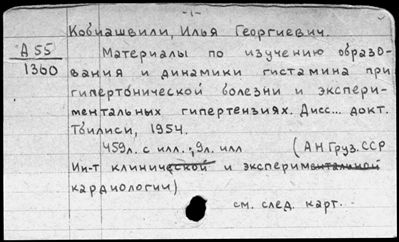 -1-
Кобиашвили, Илья Георгиевич.
А 55
1360
Материалы по изучению образо-
вания и динамики гистамина при
гипертонической болезни и экспери-
ментальных гипертензиях. Дисс... докт.
Тбилиси, 1954.
459л. с илл.; 9л. илл (АН Груз. ССР
Ин-т клинической и экспериментальной
кардиологии)
см. след. карт.